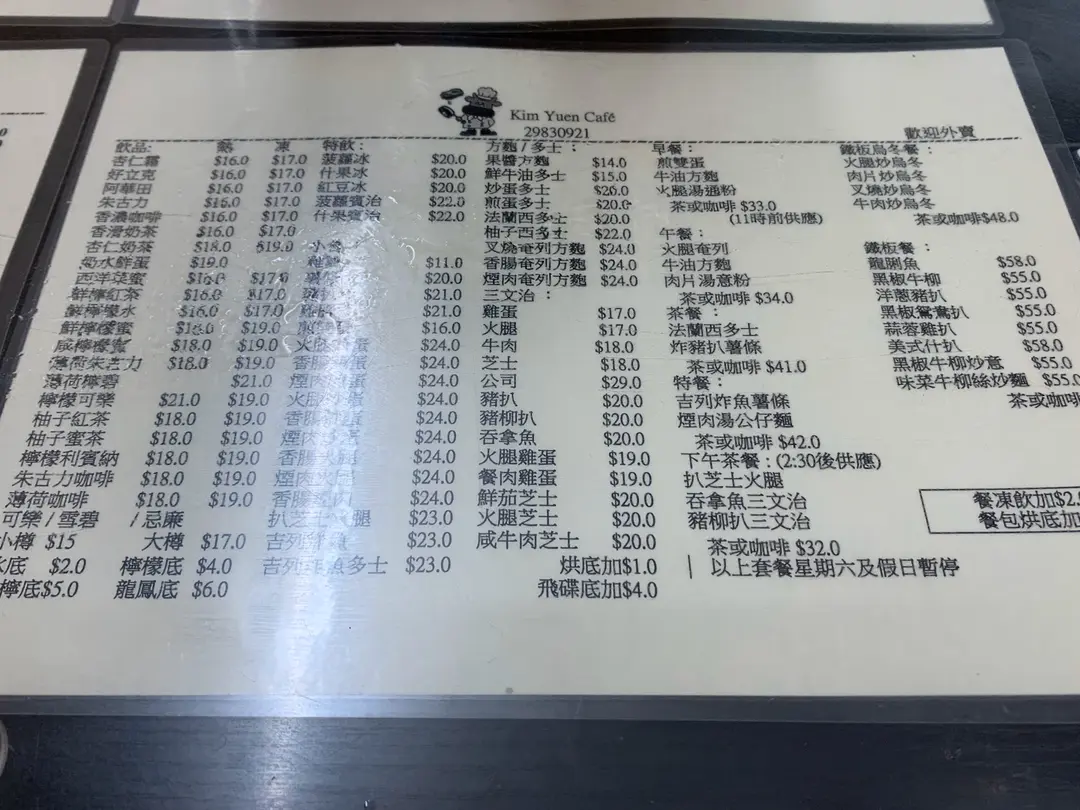 Kim Yuen Café
29830921
歡迎外賣
飲品: 熱 凍
杏仁霜 $16.0 $17.0
好立克 $16.0 $17.0
阿華田 $16.0 $17.0
朱古力 $16.0 $17.0
香濃咖啡 $16.0 $17.0
香滑奶茶 $16.0 $17.0
杏仁奶茶 $18.0 $19.0
奶水鮮蛋 $19.0
西洋菜蜜 $16.0 $17.0
鮮檸紅茶 $16.0 $17.0
鮮檸檬水 $16.0 $17.0
鮮檸檬蜜 $18.0 $19.0
咸檸檬蜜 $18.0 $19.0
薄荷朱古力 $18.0 $19.0
薄荷檸碧 $21.0
檸檬可樂 $21.0 $19.0
柚子紅茶 $18.0 $19.0
柚子蜜茶 $18.0 $19.0
檸檬利賓納 $18.0 $19.0
朱古力咖啡 $18.0 $19.0
薄荷咖啡 $18.0 $19.0
可樂 / 雪碧 / 忌廉
小樽 $15 大樽 $17.0
底 $2.0 檸檬底 $4.0
檸底$5.0 龍鳳底 $6.0
特飲:
菠蘿冰 $20.0
什果冰 $20.0
紅豆冰 $20.0
菠蘿賓治 $22.0
什果賓治 $22.0
$11.0
$20.0
$21.0
$21.0
$16.0
$24.0
$24.0
$24.0
$24.0
$24.0
$24.0
$24.0
$24.0
$24.0
扒芝士火腿 $23.0
吉列 $23.0
吉列炸魚多士 $23.0
方麵 / 多士:
果醬方麵 $14.0
鮮牛油多士 $15.0
炒蛋多士 $20.0
煎蛋多士 $20.0
法蘭西多士 $20.0
柚子西多士 $22.0
叉燒奄列方麵 $24.0
香腸奄列方麵 $24.0
煙肉奄列方麵 $24.0
三文治:
雞蛋 $17.0
火腿 $17.0
牛肉 $18.0
芝士 $18.0
公司 $29.0
豬扒 $20.0
豬柳扒 $20.0
吞拿魚 $20.0
火腿雞蛋 $19.0
餐肉雞蛋 $19.0
鮮茄芝士 $20.0
火腿芝士 $20.0
咸牛肉芝士 $20.0
烘底加$1.0
飛碟底加$4.0
早餐:
煎雙蛋
牛油方麵
火腿湯通粉
茶或咖啡 $33.0
(11時前供應)
午餐:
火腿奄列
牛油方麵
肉片湯意粉
茶或咖啡 $34.0
茶餐:
法蘭西多士
炸豬扒薯條
茶或咖啡 $41.0
特餐:
吉列炸魚薯條
煙肉湯公仔麵
茶或咖啡 $42.0
下午茶餐: (2:30後供應)
扒芝士火腿
吞拿魚三文治
豬柳扒三文治
茶或咖啡 $32.0
以上套餐星期六及假日暫停
鐵板烏冬餐:
火腿炒烏冬
肉片炒烏冬
叉燒炒烏冬
牛肉炒烏冬
茶或咖啡$48.0
鐵板餐:
龍脷魚 $58.0
黑椒牛柳 $55.0
洋蔥豬扒 $55.0
黑椒鴛鴦扒 $55.0
蒜蓉雞扒 $55.0
美式什扒 $58.0
黑椒牛柳炒意 $55.0
味菜牛柳絲炒麵 $55.0
茶或咖啡
餐凍飲加$2.
餐包烘底加